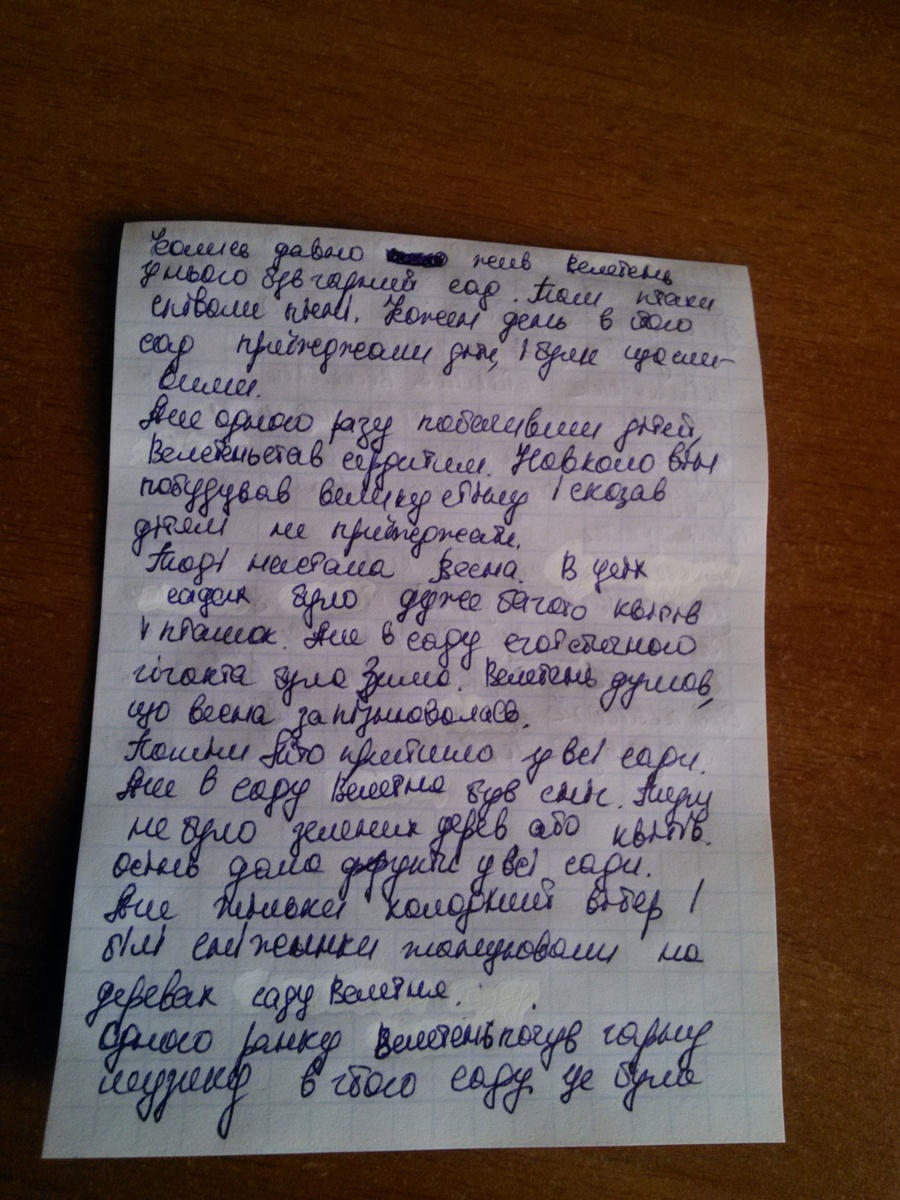 Колись давно жив Велетень
У нього був гарний сад. Там птахи
співали пісні. Кожен день в його
сад приїжджали діти, і були щасли-
вими.
Але одного разу побачивши дітей,
Велетень став сердитим. Навколо він
побудував велику стіну і сказав
дітям не приїжджати.
Тоді настала Весна. В усіх
садах було дуже багато квітів
і пташок. Але в саду егоїстичного
гіганта була Зима. Велетень думав,
що весна запізнювалась.
Потім Літо прийшло у всі сади.
Але в саду Велетня був сніг. Тиру
не було зелених дерев або квітів.
осінь дала фрукти у всі сади.
Але тільки холодний вітер і
білі сніжинки танцювали на
деревах саду Велетня.
Одного ранку Велетень почув гарну
музику в його саду. це була